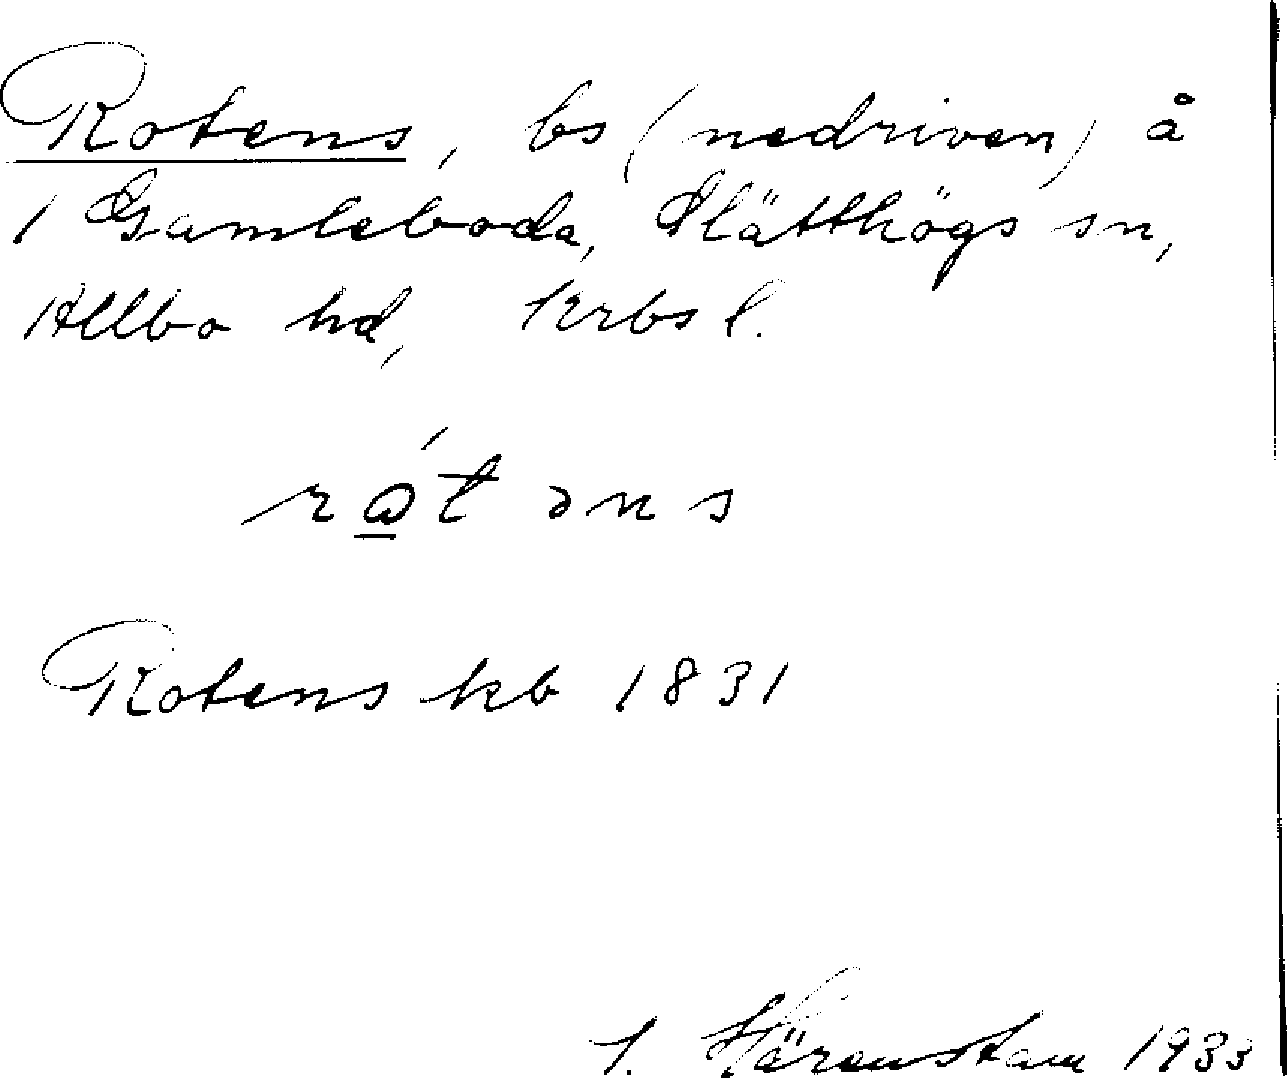 Rotens, bs (nedriven) å
1 Gamleboda, Slätthögs sn,
Allbo hd, Krbs l.
rát əns
Rotens kb 1831
1933